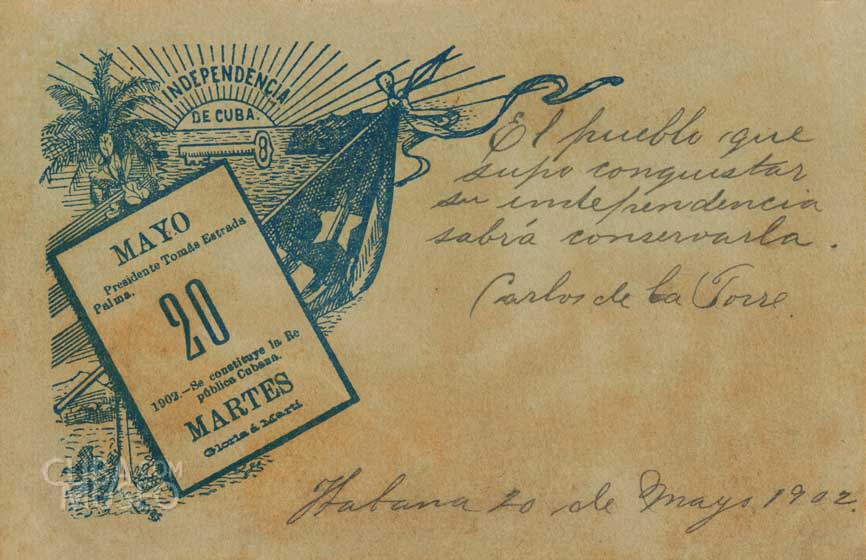 INDEPENDENCIA
DE CUBA.
MAYO
Presidente Tomás Estrada
Palma.
20
1902.-Se constituye la Re
pública Cubana.
MARTES
Gloria á Martí
El pueblo que
supo conquistar
su independencia
sabrá conservarla.
Carlos de la Torre
Habana 20 de Mayo 1902.
CUBA
MUSEO
.COM